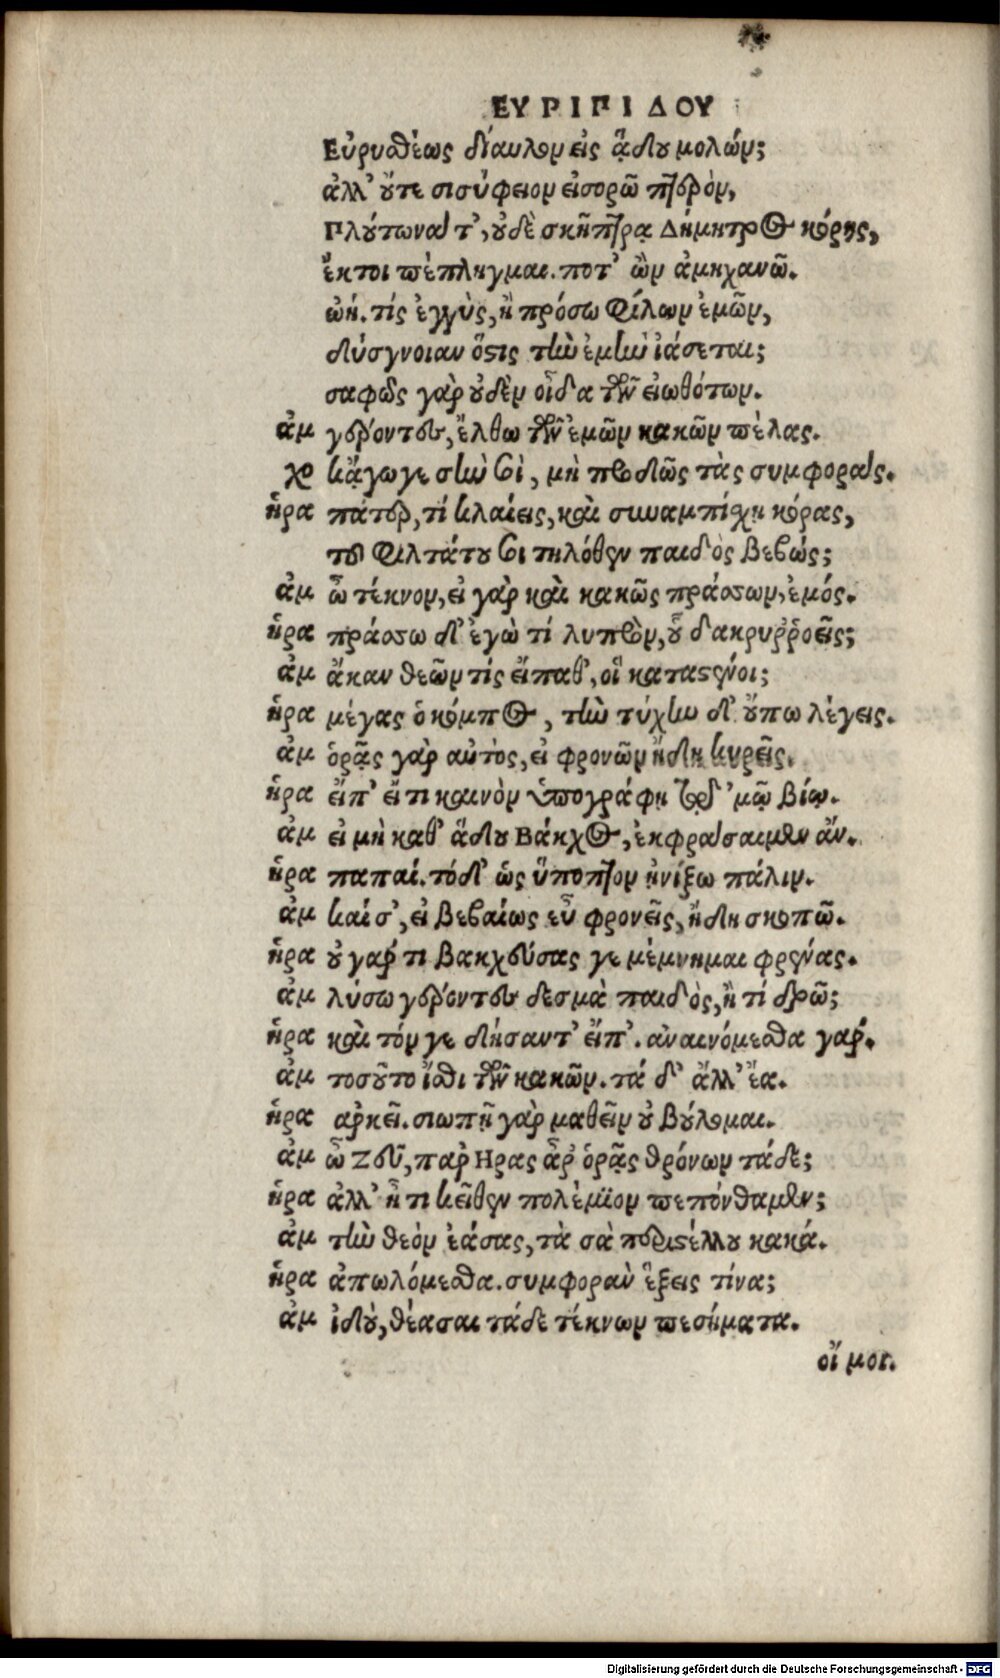 ΕΥΡΙΠΙΔΟΥ
Εὐρυσθέως δίαυλον εἰς ᾅδου μολών;
ἀλλ' οὔτε σισύφειον εἰσορῶ πέτρον,
Πλούτωνά τ', οὐδὲ σκῆπτρα Δήμητρος κόρης,
ἔκτοι πέπληγμαι. ποτ' ὢν ἀμηχανῶ.
ὠή. τίς ἐγγὺς, ἢ πρόσω φίλων ἐμῶν,
δύσγνοιαν ὅστις τὴν ἐμὴν ἰάσεται;
σαφῶς γὰρ οὐδὲν οἶδα τῶν εἰωθότων.
ἀμ γέροντες, ἔλθω τῶν ἐμῶν κακῶν πέλας.
χο κᾄγωγε σὺν σοὶ, μὴ προδῶς τὰς συμφοράς.
ἡρα πάτερ, τί κλαίεις, καὶ συναμπίσχῃ κόρας,
τοῦ φιλτάτου σοι τηλόθεν παιδὸς βεβώς;
ἀμ ὦ τέκνον, εἰ γὰρ καὶ κακῶς πράσσων, ἐμός.
ἡρα πράσσω δ' ἐγὼ τί λυπρὸν, οὗ δακρυῤῥοεῖς;
ἀμ ἄκαν θεῶν τίς εἴπαθ', οἳ καταστένοι;
ἡρα μέγας ὁ κόμπος, τὴν τύχην δ' οὔπω λέγεις.
ἀμ ὁρᾷς γὰρ αὐτὸς, εἰ φρονῶν ἤδη κυρεῖς.
ἡρα εἴπ' εἴ τι καινὸν ὑπογράφῃ τᾠδ' 'μῷ βίῳ.
ἀμ εἰ μὴ καθ' ᾅδου Βάκχος, ἐκφράσαιμεν ἄν.
ἡρα παπαί. τόδ' ὡς ὕποπτον ᾐνίξω πάλιν.
ἀμ καί σ', εἰ βεβαίως εὖ φρονεῖς, ἤδη σκοπῶ.
ἡρα οὐ γάρ τι βακχεύσας γε μέμνημαι φρένας.
ἀμ λύσω γέροντες δεσμὰ παιδὸς, ἢ τί δρῶ;
ἡρα καὶ τόν γε δήσαντ' εἴπ'. ἀναινόμεσθα γάρ.
ἀμ τοσοῦτο ἴσθι τῶν κακῶν. τά δ' ἄλλ' ἔα.
ἡρα ἀρκεῖ. σιωπῇ γὰρ μαθεῖν οὐ βούλομαι.
ἀμ ὦ Ζεῦ, παρ Ηρας ἆρ' ὁρᾷς θρόνων τάδε;
ἡρα ἀλλ' ἦ τι κεῖθεν πολέμιον πεπόνθαμεν;
ἀμ τὴν θεὸν ἐάσας, τὰ σὰ περιστέλλου κακά.
ἡρα ἀπωλόμεσθα. συμφορὰν ἕξεις τίνα;
ἀμ ἰδού, θέασαι τάδε τέκνων πεσήματα.
οἴ μοι.
Digitalisierung gefördert durch die Deutsche Forschungsgemeinschaft - DFG